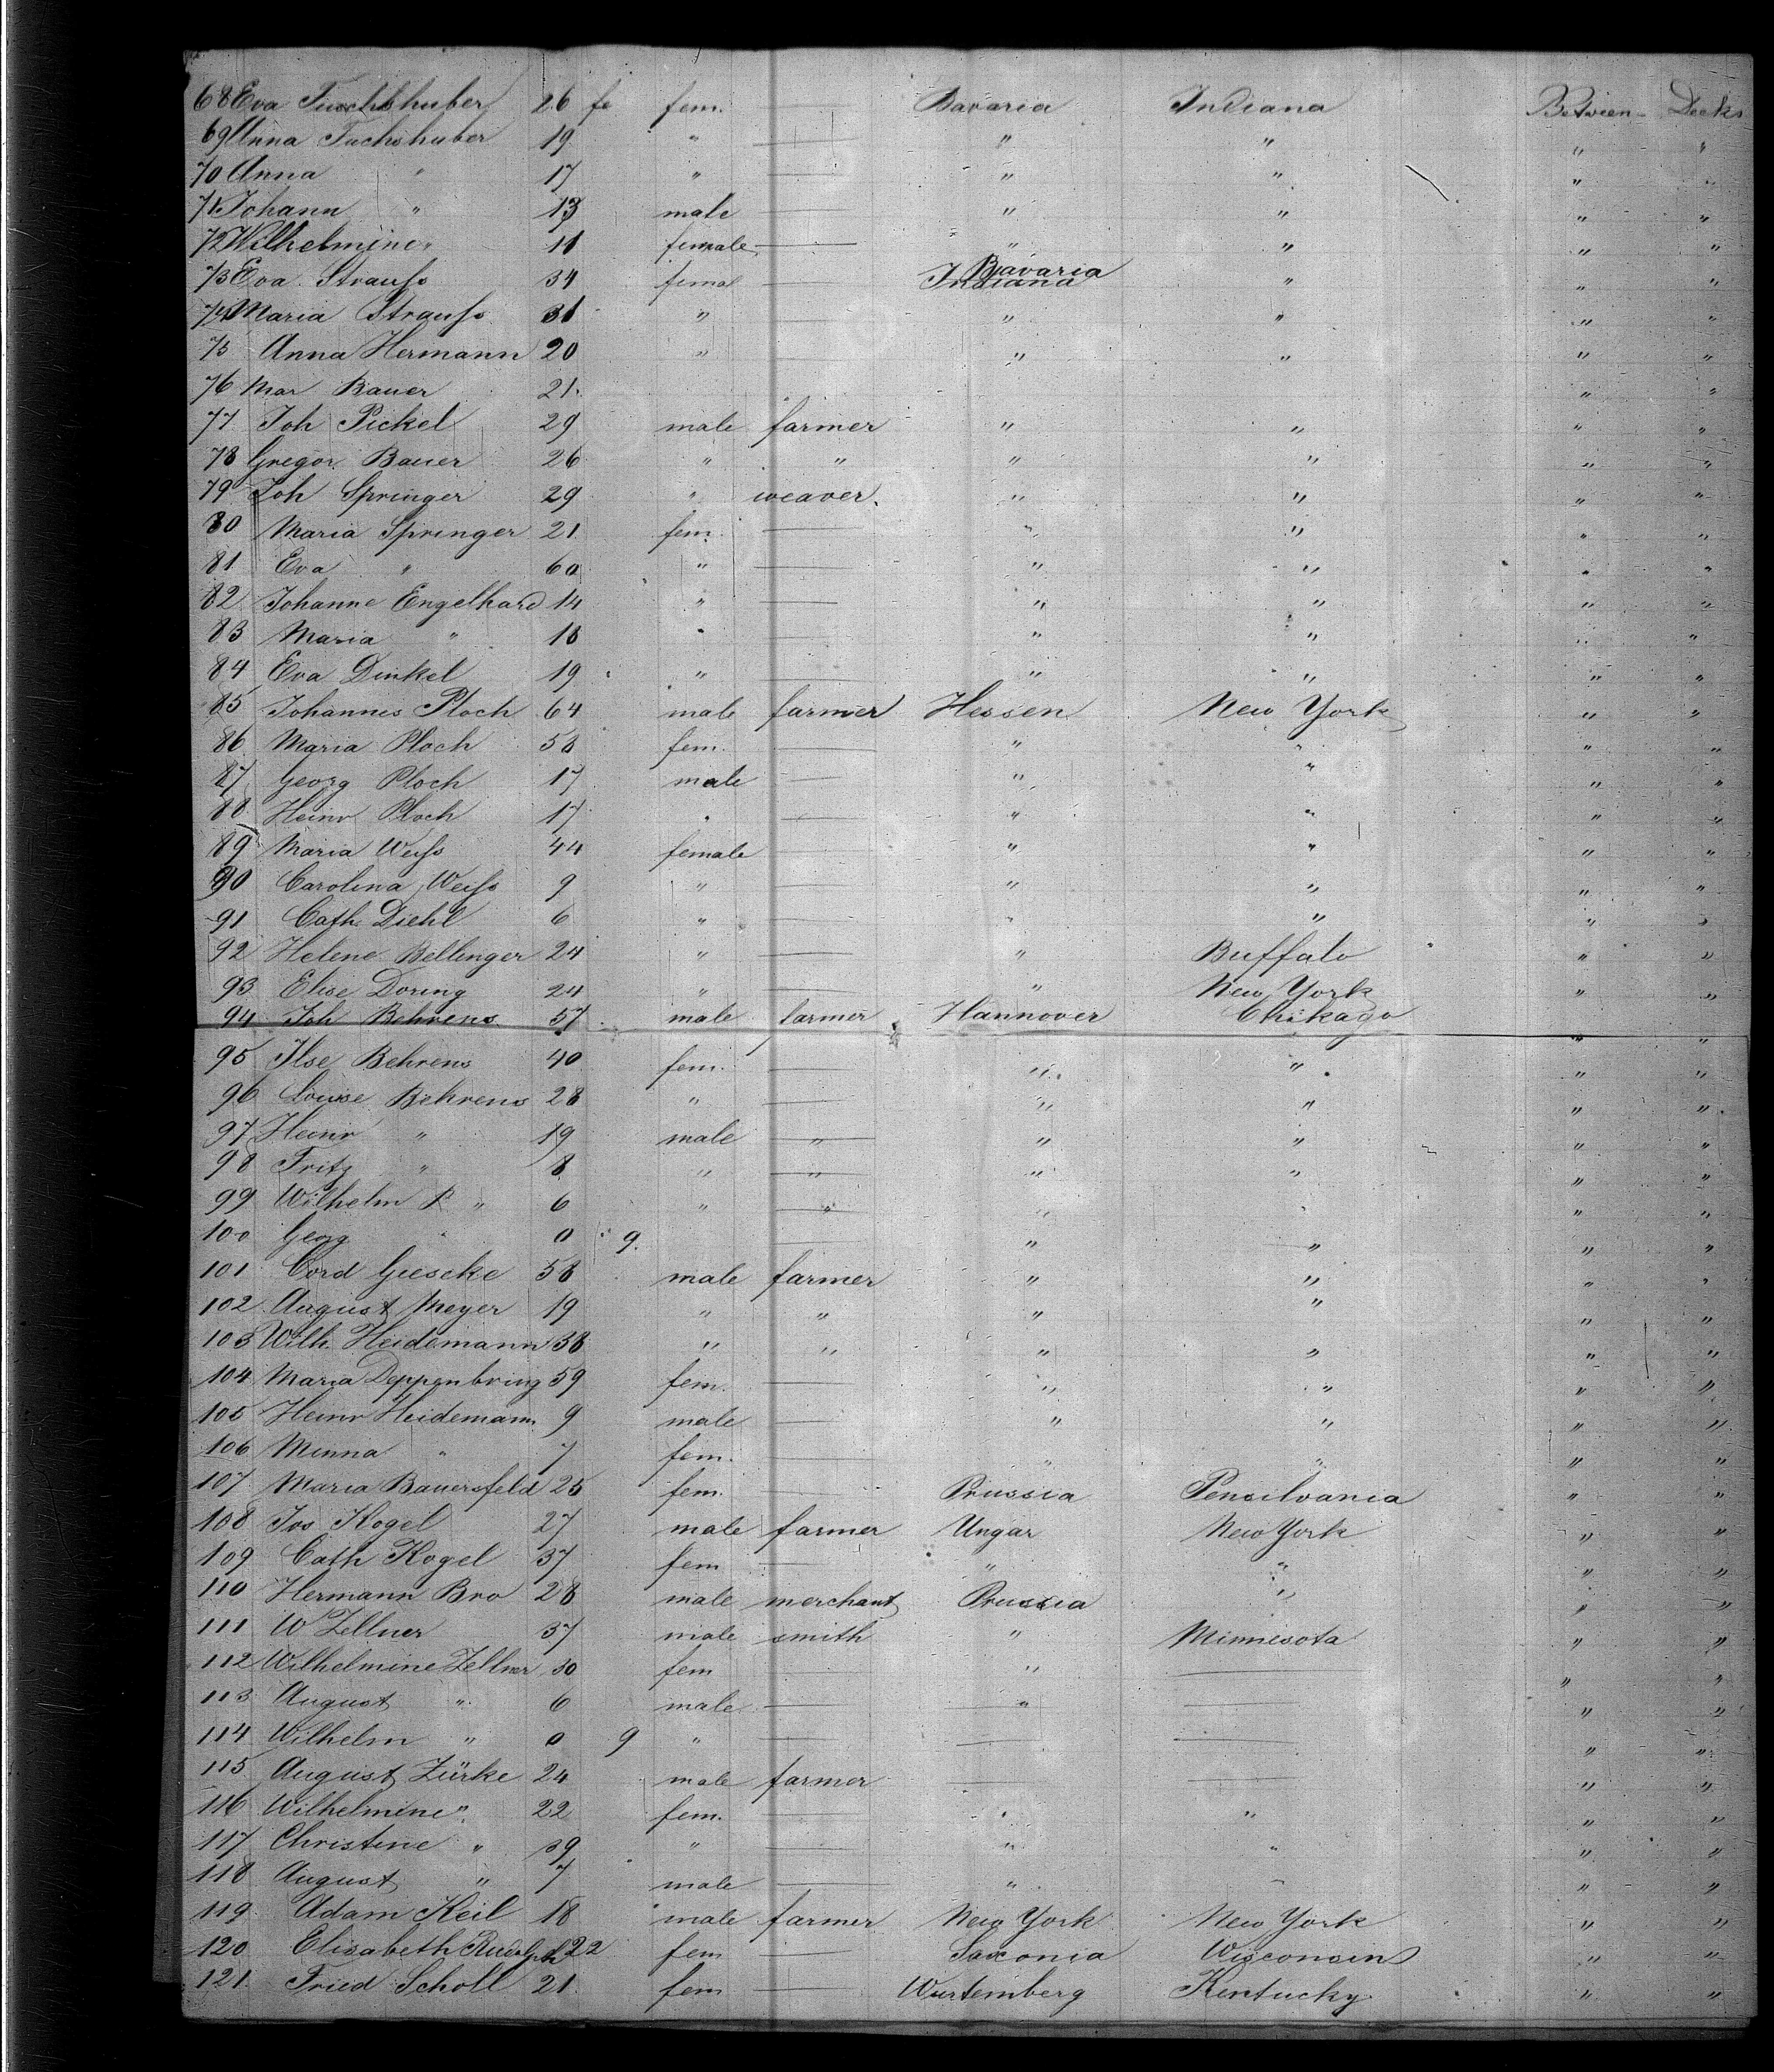 68 Eva Fuchshuber 26 fe fem. — Bavaria Indiana Between Decks
69 Anna Fuchshuber 19 " — " " " "
70 Anna " 17 " — " " " "
71 Johann " 13 male — " " " "
72 Wilhelmine " 11 female — " " " "
73 Eva Strauss 34 femal — Indiana Bavaria " " "
74 Maria Strauss 31 " — " " " "
75 Anna Hermann 20 " — " " " "
76 Mar Bauer 21 " "
77 Joh Pickel 29 male farmer " " " "
78 Gregor Bauer 26 " " " " " "
79 Joh Springer 29 " weaver. " " " "
80 Maria Springer 21 fem. — " " " "
81 Eva " 60 " — " " " "
82 Johanne Engelhard 14 " — " " " "
83 Maria " 18 " — " " " "
84 Eva Dinkel 19 " — " " " "
85 Johannes Ploch 64 male farmer Hessen New York " "
86 Maria Ploch 58 fem. — " " " "
87 Georg Ploch 17 male — " " " "
88 Heinr Ploch 17 " — " " " "
89 Maria Weiss 44 female — " " " "
90 Carolina Weiss 9 " — " " " "
91 Cath. Diehl 6 " — " " " "
92 Helene Bellinger 24 " — " Buffalo " "
93 Elise Doring 24 " — " New York " "
94 Joh Behrens 57 male farmer Hannover Chikago " "
95 Ilse Behrens 40 fem. — " " " "
96 Louise Behrens 28 " — " " " "
97 Heinr " 19 male " " " " "
98 Fritz " 8 " " " " " "
99 Wilhelm " 6 " " " " " "
100 Georg " 0 9. — " " " "
101 Cord Giescke 58 male farmer " " " "
102 August Meyer 19 " " " " " "
103 Wilh. Heidemann 38 " " " " " "
104 Maria Deppenbring 59 fem. — " " " "
105 Heinr Heidemann 9 male — " " " "
106 Minna " 7 fem. — " " " "
107 Maria Bauersfeld 25 fem. — Prussia Pensilvania " "
108 Jos Kogel 27 male farmer Ungar New York " "
109 Cath Kogel 37 fem — " " " "
110 Hermann Bro 28 male merchant Prussia " " "
111 W Zellner 37 male smith " Minnesota " "
112 Wilhelmine Zellner 30 fem — " — " "
113 August " 6 male — " — " "
114 Wilhelm " 0 9 " — — — " "
115 August Zürke 24 male farmer — — " "
116 Wilhelmine " 22 fem. — " " " "
117 Christine " 39 " — " " " "
118 August " 7 male — " " " "
119 Adam Keil 18 male farmer New York New York " "
120 Elisabeth Rudolph 22 fem — Saxonia Wisconsin " "
121. Fried Scholl 21. fem — Wurtemberg Kentucky " "